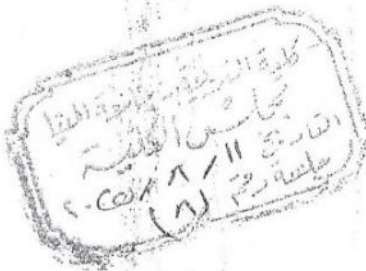 كلية التربية جامعة المنيا
مجلس الكلية
التاريخ ١١ / ٨ /
جلسة رقم (٨)